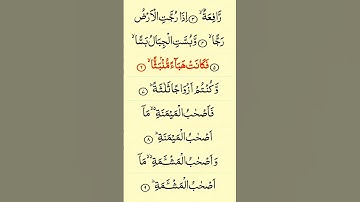 رَّافِعَةٌ ۙ ۳ اِذَا رُجَّتِ الْاَرْضُ
رَجًّا ۙ ۴ وَّبُسَّتِ الْجِبَالُ بَسًّا ۙ
۵ فَكَانَتْ هَبَآءً مُّنْۢبَثًّا ۙ ۶
وَّكُنْتُمْ اَزْوَاجًا ثَلٰثَةً ؕ ۷
فَاَصْحٰبُ الْمَيْمَنَةِ ۙ۬ مَاۤ
اَصْحٰبُ الْمَيْمَنَةِ ؕ ۸
وَاَصْحٰبُ الْمَشْـَٔمَةِ ۙ۬ مَاۤ
اَصْحٰبُ الْمَشْـَٔمَةِ ؕ ۹